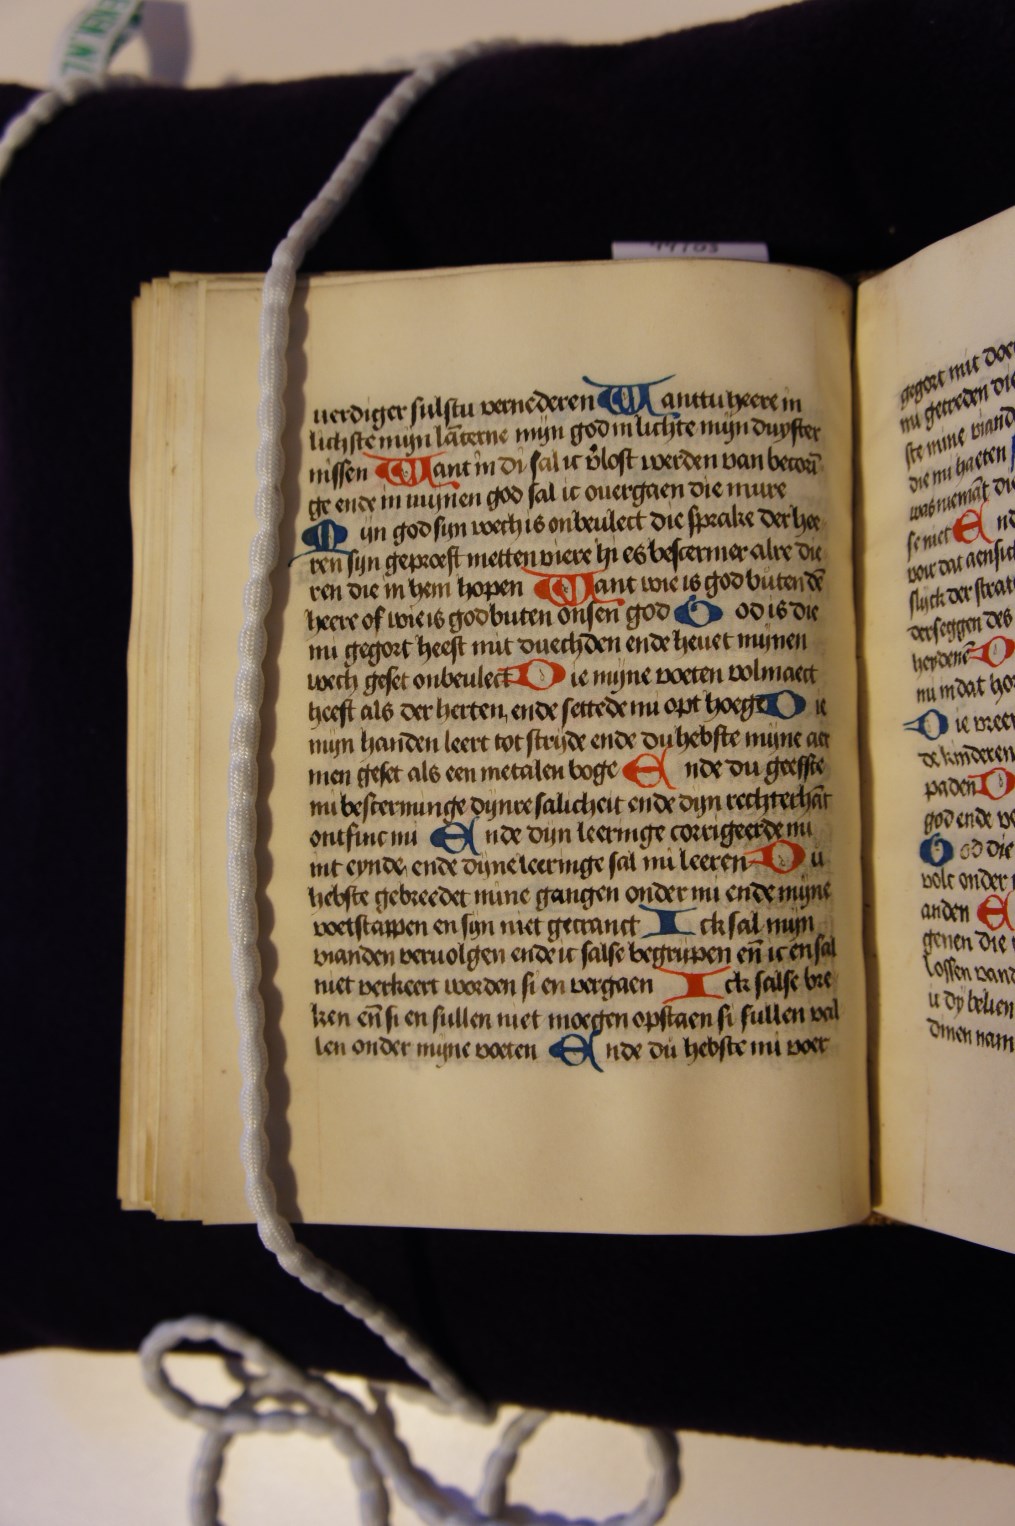 uerdiger sulstu vernederen Want tu heere in
lichste mijn lāterne mijn god in lichte mijn duyster
nissen Want in di sal ic v̓lost werden van becorī
ge ende in mijnen god sal ic ouergaen die mure
Mijn god sijn wech is onbeulect die sprake der hee
ren sijn geproeft metten viere hi es bescermer alre die
ren die in hem hopen Want wie is god buten dē
heere of wie is god buten onsen god God is die
mi gegort heeft mit duechden ende heuet mijnen
wech geset onbeulect Die mijne voeten volmaect
heeft als der herten, ende settede mi opt hoege Die
mijn handen leert tot strijde ende du hebste mijne aer
men geset als een metalen boge Ende du geefste
mi besterminge dijnre salicheit ende dijn rechterhāt
ontfinc mi Ende dijn leeringe corrigeerde mi
int eynde, ende dijne leeringe sal mi leeren Du
hebste gebreedet mine gangen onder mi ende mijne
voetstappen en sijn niet gecranct Ick sal mijn
vianden vervolgen ende ic salse begrijpen eñ ic en sal
niet verkeert worden si en vergaen Ick salse bre
ken eñ si en sullen niet moegen opstaen si sullen val
len onder mijne voeten Ende du hebste mi voer
gegort mit
mi getreden die
ste mine viand
die mi haeten
was niemāt die
se niet End
voir dat aensich
slijck der strat
derseggen des
heydenē D
mi in dat ho
Die vree
de kinderen
paden D
god ende
God die
volc onder
anden E
genen die
lossen vand
dinen nam